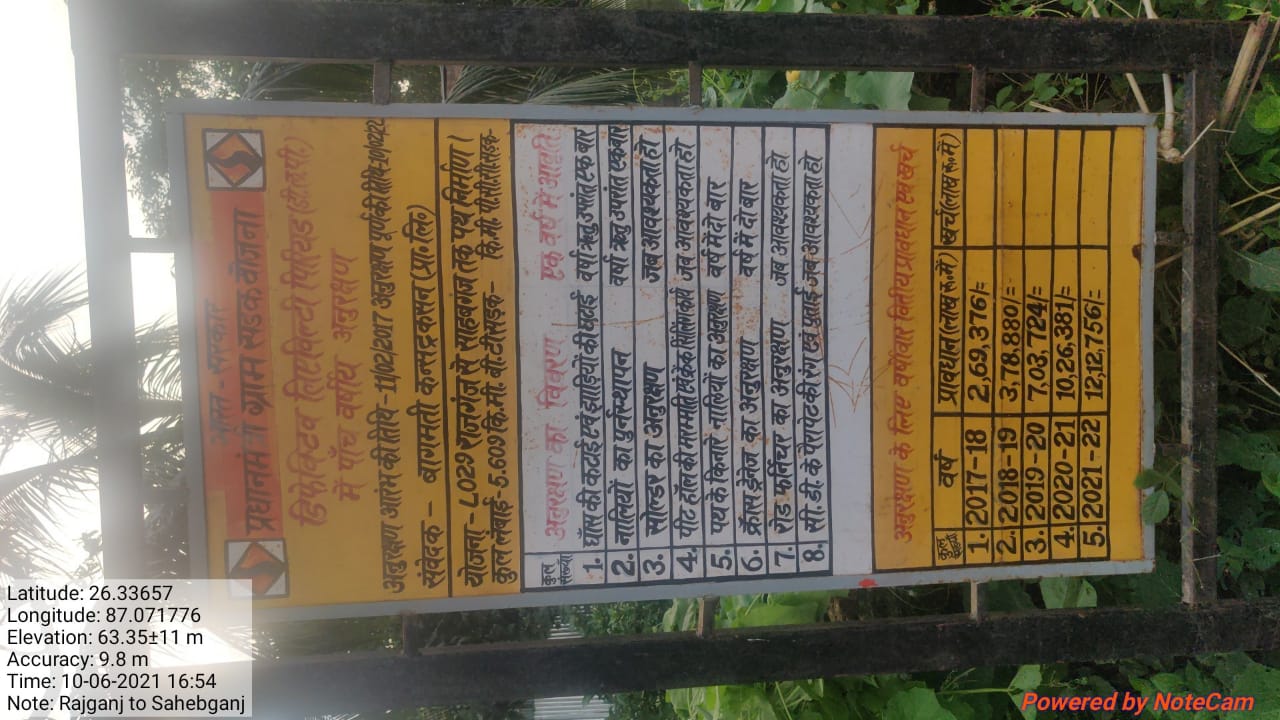 भारत - सरकार
प्रधानमंत्री ग्राम सडक योजना
डिफेक्टिव लिएबिल्टी पिरियड (डी.एल.पी)
में पाँच वर्षीय अनुरक्षण
अनुरक्षण आरंभ की तिथि - 11/02/2017 अनुरक्षण पूर्ण की तिथि- 10/02/22
संवेदक - बागमती कन्सट्रक्सन (प्रा० लि०)
योजना - L029 राजगंज से साहेबगंज तक पथ निर्माण।
कुल लंबाई - 5.609 कि.मी. बी.टी.सड़क- कि.मी. पी.सी.सी.सड़क-
कुल संख्या अनुरक्षण का विवरण एक वर्ष में आवृति
1. घाँस की कटाई एवं झाडियों की छटाई वर्षा ऋतु उपरांत एक बार
2. नालियों का पुर्नस्थापन वर्षा ऋतु उपरांत एक बार
3. सोल्डर का अनुरक्षण जब आवश्यकता हो
4. पौट हॉल की मरम्मति एवं क्रेक सिलिंग कार्य जब आवश्यकता हो
5. पथ के किनारे नालियों का अनुरक्षण वर्ष में दो बार
6. क्रॉस ड्रेनेज का अनुरक्षण वर्ष में दो बार
7. रोड फर्निचर का अनुरक्षण जब आवश्यकता हो
8. सी.डी. के पैरापेट की रंग एवं पुताई जब आवश्यकता हो
अनुरक्षण के लिए वर्षवार वित्तीय प्रावधान एवं खर्च
वर्ष प्रावधान(लाख रू० में) खर्च(लाख रू० में)
1. 2017-18 2,69,376/=
2. 2018-19 3,78,880/=
3. 2019-20 7,03,724/=
4. 2020-21 10,26,381/=
5. 2021-22 12,12,756/=
Latitude: 26.33657
Longitude: 87.071776
Elevation: 63.35±11 m
Accuracy: 9.8 m
Time: 10-06-2021 16:54
Note: Rajganj to Sahebganj
Powered by NoteCam